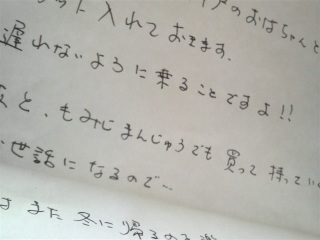 入れておきます、 のおばちゃんと
遅れないように乗ることですよ!!
と、もみじまんじゅうでも買って持って
世話になるので…
また冬に帰る